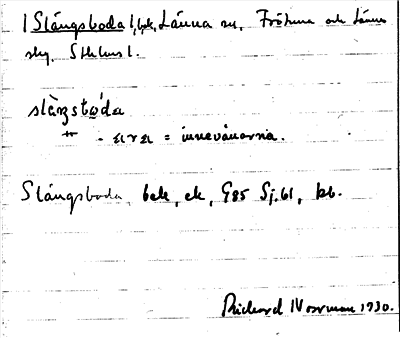 Slångsboda, bek, Länna sn, Frötuna och Länna
skg, Sthlms l.
slåŋstbo̱da
" - εrɛ = innevånarna.
Slångsboda, bek, ek, G85 Sj.61, kb.
Richard Norrman 1930.